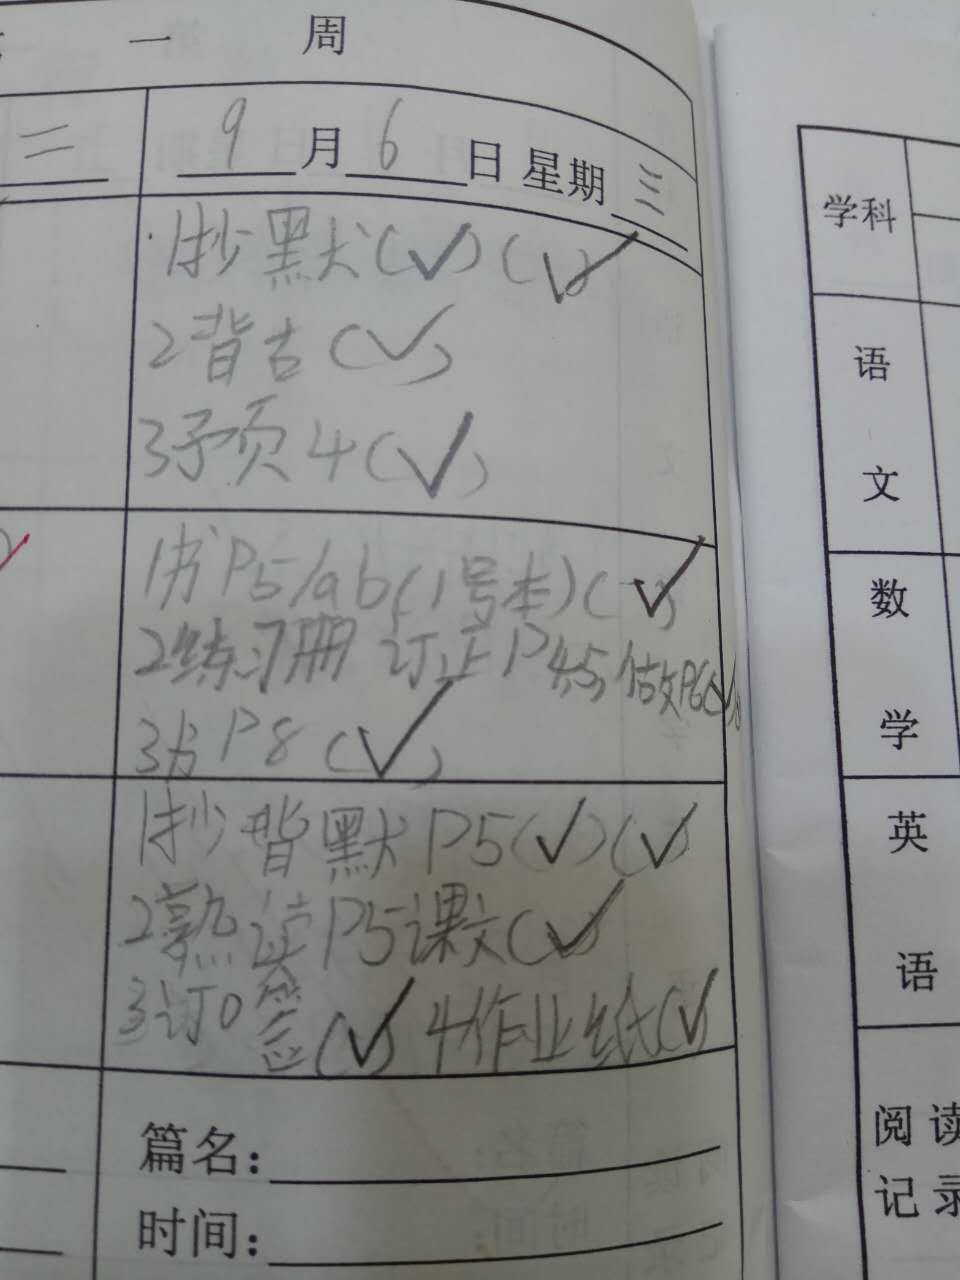 一 周
二
9月6日 星期三
1抄默(✓)(✓)
2背古(✓)
3予页4(✓)
1书P5/ab(1号本)(✓)
2练习册 订正P4,5,做P6(✓)
3书P8(✓)
1抄背默P5(✓)(✓)
2熟读P5课文(✓)
3订口签(✓) 4作业纸(✓)
篇名:
时间:
学科
语
文
数
学
英
语
阅读
记录